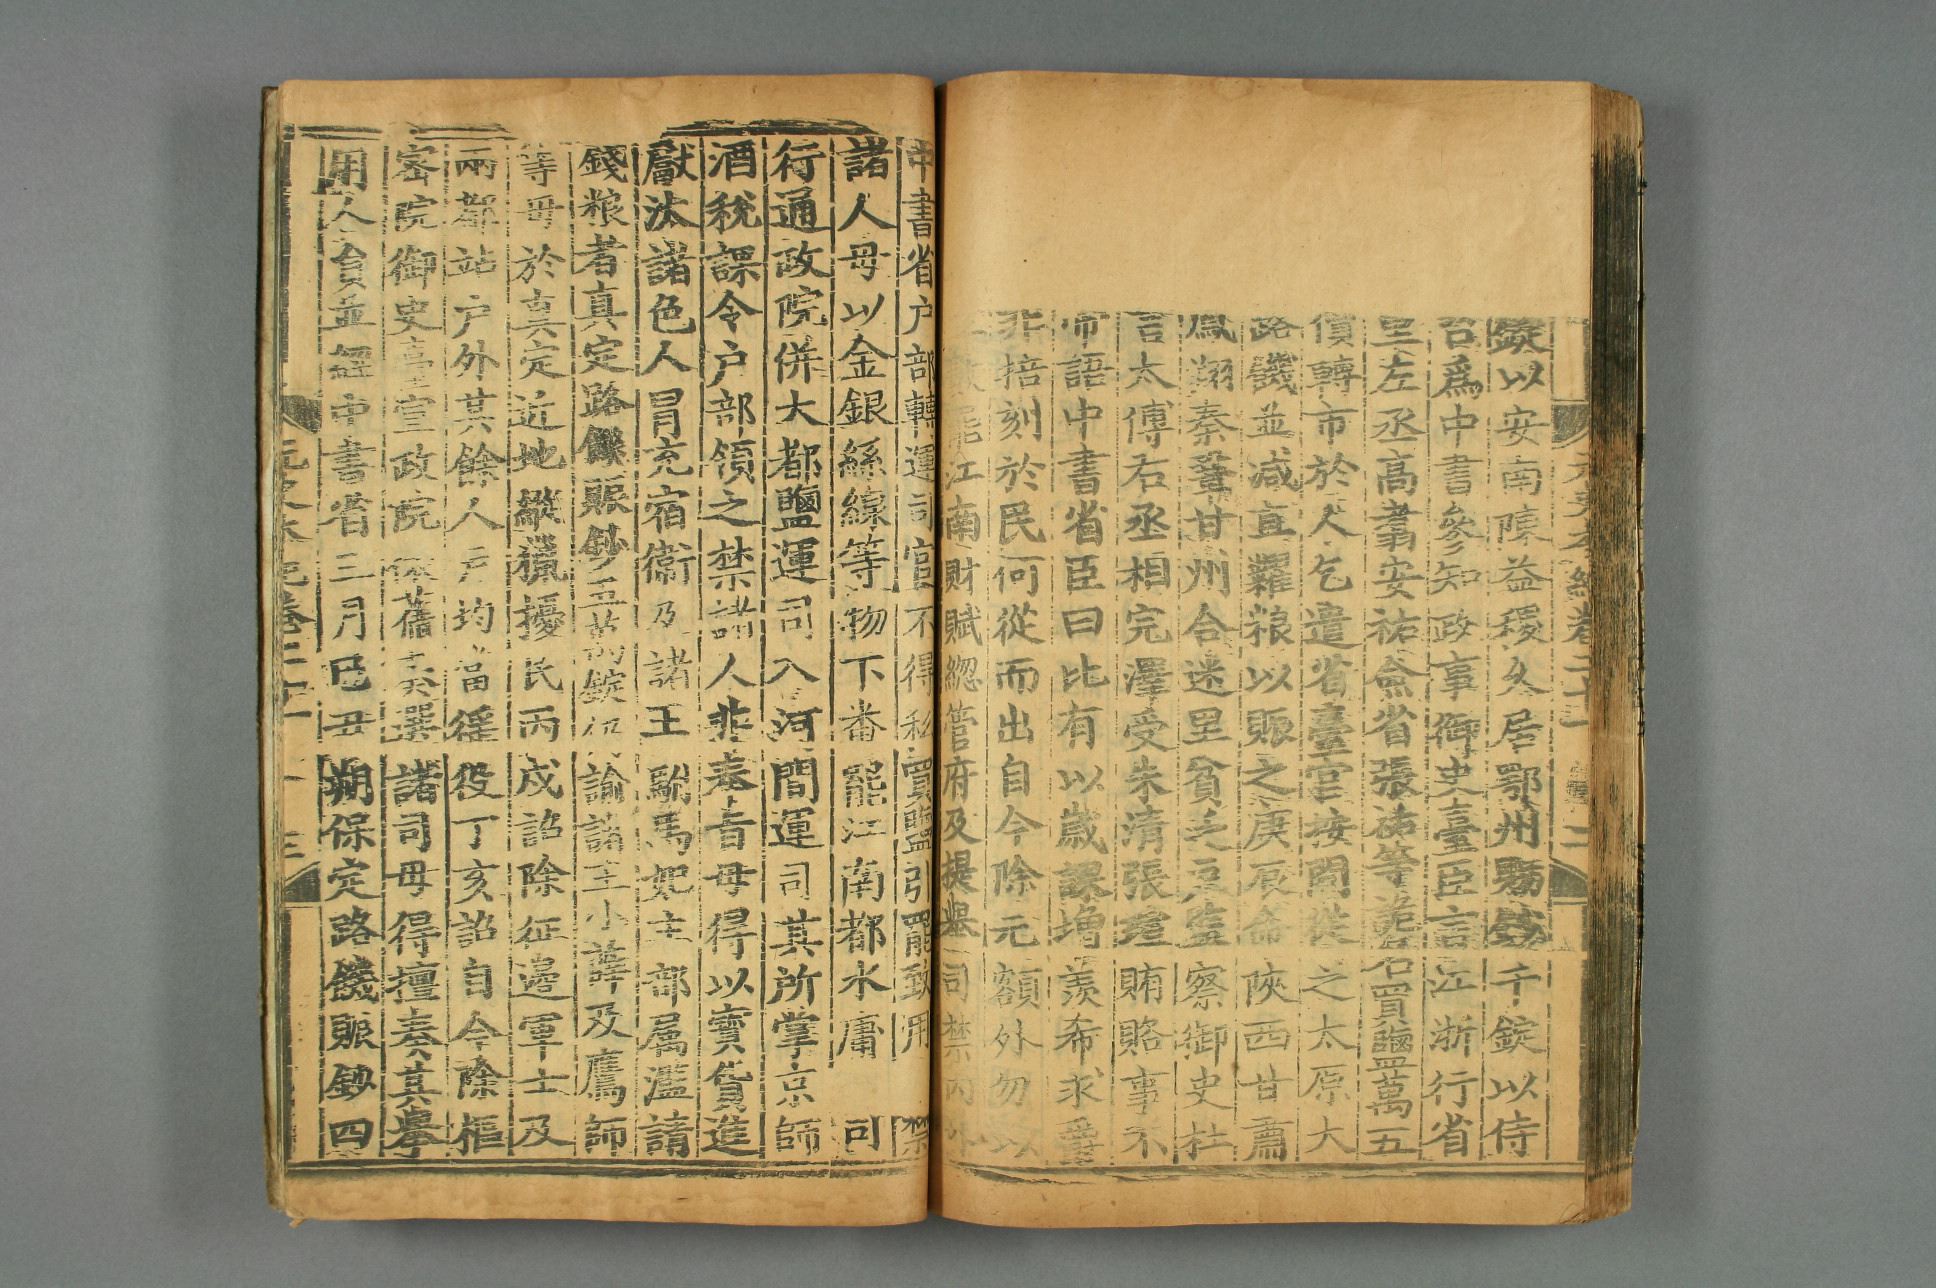 元史本紀卷二十一 二
錠以安南陳益稷久居鄂州賜鈔千錠以侍
台爲中書參知政事御史臺臣言江浙行省
里左丞高翥安祐僉省張祐等詭名買鹽萬五
價轉市於人乞遣省臺官按問從之太原大
路饑並減直糶粮以賑之庚辰命陝西甘肅
鳳翔秦鞏甘州合迷里貧乏户監察御史杜
言太傅右丞相完澤受朱清張瑄賄賂事不
帝語中書省臣曰比有以歲課增羨希求爵
非掊刻於民何從而出自今除元額外勿以
罷江南財賦緫管府及提舉司禁内外
中書省户部轉運司官不得私買鹽引罷致用禁
諸人毋以金銀絲線等物下番罷江南都水庸司
行通政院併大都鹽運司入河間運司其所掌京師
酒稅課令户部領之禁諸人非奉旨毋得以寶貨進
獻汰諸色人冒充宿衛及諸王駙馬妃主部屬濫請
錢粮者真定路饑賑鈔五萬錠仍諭諸王小薛及鷹師
等毋於真定近地縱獵擾民丙戌詔除征邊軍士及
兩都站户外其餘人户均當徭役丁亥詔自今除樞
密院御史臺宣政院依舊奏選諸司毋得擅奏其舉
用人員並經中書省三月己丑朔保定路饑賑鈔四
元史本紀卷二十一 三